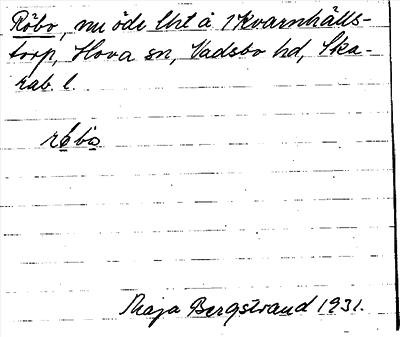 Röbo, nu öde lht å 1 Kvarnhälls-
torp, Hova sn, Vadsbo hd, Ska-
rab. l.
Maja Bergstrand 1931.